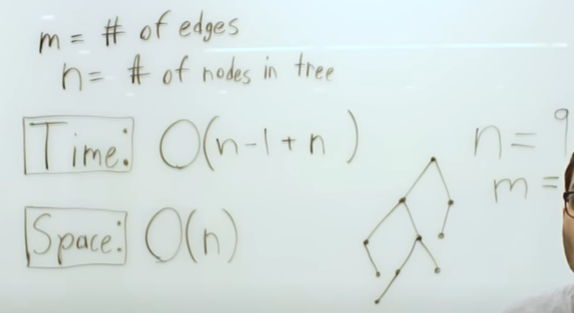 m = # of edges
n = # of nodes in tree
Time: O(n-1+n)
Space: O(n)
n = 9
m =